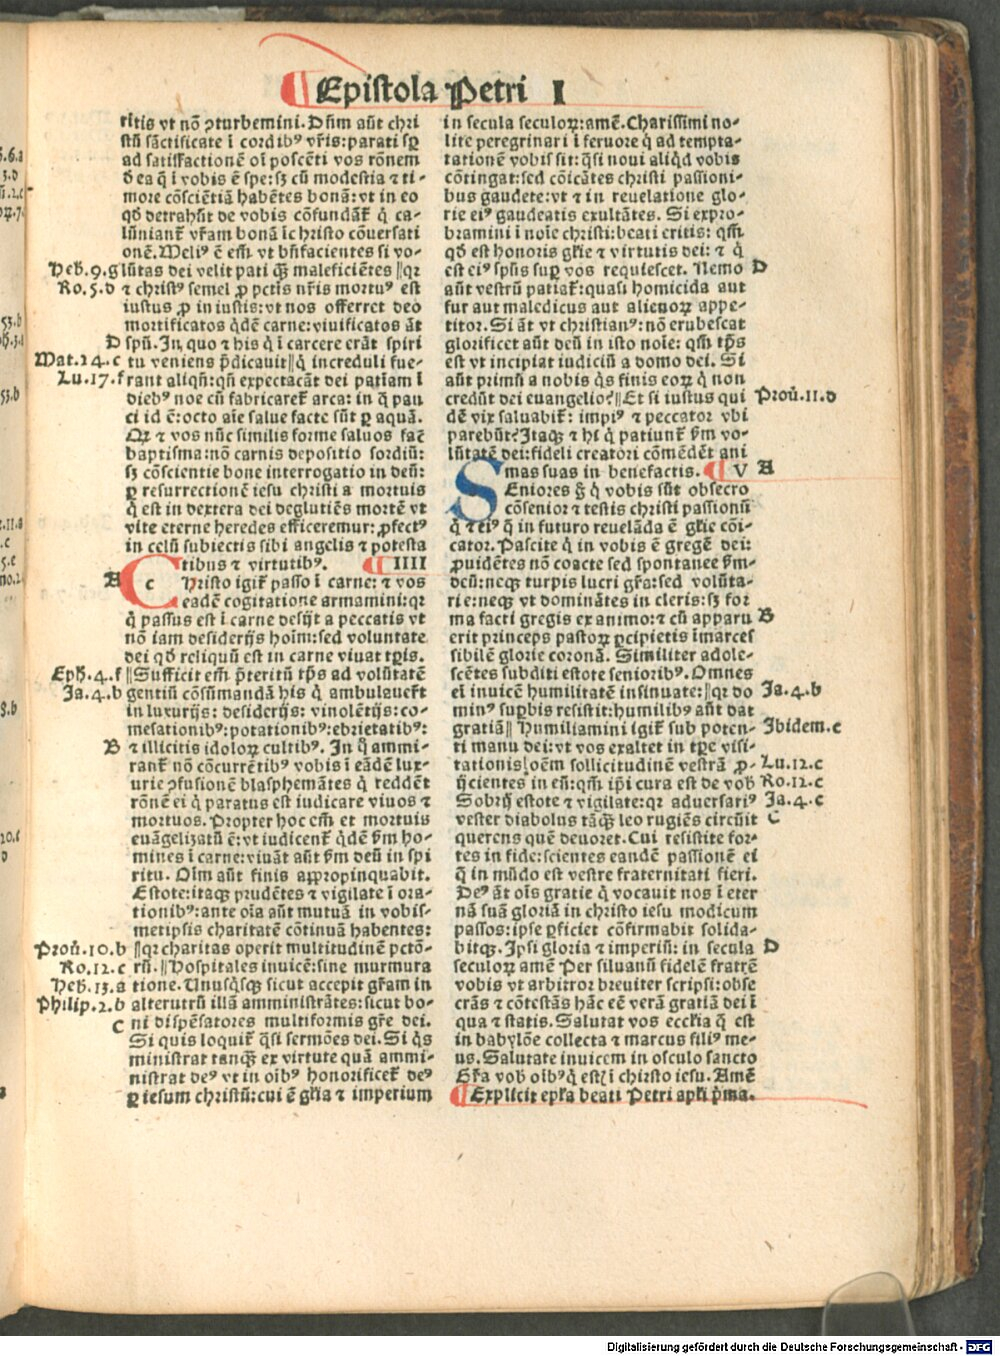 Epistola Petri I
ritis vt nõ ꝯturbemini. Dñm aũt chri
stũ sãctificate ĩ cordibꝰ vr̃is: parati sꝑ
ad satisfactionẽ oĩ poscẽti vos rõnem
ð ea q̃ ĩ vobis ẽ spe: sꝫ cũ modestia ⁊ ti-
more cõsciẽtiã habẽtes bonã: vt in eo
qð detrahũt de vobis cõfundãť q̃ ca-
lũnianť vr̃am bonã ĩ christo cõuersati
onẽ. Meliꝰ ẽ em̃ vt bñfacientes si vo-
Heb.9.g lũtas dei velit pati qꝫ maleficiẽtes ‖ qꝛ
Ro.5.d ⁊ christꝰ semel ꝓ pctis nr̃is mortuꝰ est
iustus ꝓ in iustis: vt nos offerret deo
mortificatos qðẽ carne: viuificatos ãt
D spũ. In quo ⁊ his q̃ ĩ carcere erãt spiri
Mat.24.c tu veniens p̃dicauit ‖ q̃ increduli fue-
Lu.17.f rant aliqñ: qñ expectacãt dei patiam ĩ
diebꝰ noe cũ fabricareť arca: in q̃ pau
ci id ẽ: octo aĩe salue facte sũt ꝑ aquã.
Qꝛ ⁊ vos nũc similis forme saluos fac̃
baptisma: nõ carnis depositio sordiũ:
sꝫ cõscientie bone interrogatio in deũ:
ꝑ resurrectionẽ iesu christi a mortuis
q̃ est in dextera dei deglutiẽs mortẽ vt
vite eterne heredes efficeremur: ꝓfectꝰ
in celũ subiectis sibi angelis ⁊ potesta
tibus ⁊ virtutibꝰ. IIII
A Christo igiť passo ĩ carne: ⁊ vos
eadẽ cogitatione armamini: qꝛ
q̃ passus est ĩ carne desijt a peccatis vt
nõ iam desiderijs hoĩm: sed voluntate
dei qð reliquũ est in carne viuat tp̃is.
Eph.4.f ‖ Sufficit em̃ p̃teritũ tp̃s ad volũtatẽ
Ja.4.b gentiũ cõsũmandã his q̃ ambulauer̃t
in luxurijs: desiderijs: vinolẽtijs: co-
mesationibꝰ: potationibꝰ: ebrietatibꝰ:
B ⁊ illicitis idoloꝝ cultibꝰ. In q̃ ammi-
ranť nõ cõcurrẽtibꝰ vobis ĩ eãdẽ lux-
urie ꝯfusionẽ blasphemãtes q̃ reddẽt
rõnẽ ei q̃ paratus est iudicare viuos ⁊
mortuos. Propter hoc em̃ et mortuis
euãgelizatũ ẽ: vt iudicenť qðẽ ẜm ho-
mines ĩ carne: viuãt aũt ẜm deũ in spi
ritu. Oĩm aũt finis appropinquabit.
Estote: itaqꝫ prudẽtes ⁊ vigilate ĩ ora-
tionibꝰ: ante oĩa aũt mutuã in vobis-
metipsis charitatẽ cõtinuã habentes:
Prou̾.10.b ‖ qꝛ charitas operit multitudinẽ pctõ-
Ro.12.c rũ. ‖ Hospitales inuicẽ: sine murmura
Heb.13.a tione. Unusq̃sqꝫ sicut accepit gr̃am in
Philip.2.b alterutrũ illã amministrãtes: sicut bo-
C ni dispẽsatores multiformis gr̃e dei.
Si quis loquiť q̃si sermões dei. Si q̃s
ministrat tanqꝫ ex virtute quã ammi-
nistrat deꝰ vt in oĩbꝰ honorificeť deꝰ
ꝑ iesum christũ: cui ẽ gl̃ia ⁊ imperium
in secula seculoꝝ: amẽ. Charissimi no-
lite peregrinari ĩ feruore q̃ ad tempta-
tationẽ vobis sit: q̃si noui aliq̃d vobis
cõtingat: sed cõicãtes christi passioni-
bus gaudete: vt ⁊ in reuelatione glo-
rie eiꝰ gaudeatis exultãtes. Si expro-
bramini ĩ noĩe christi: beati eritis: qm̃
qð est honoris gl̃ie ⁊ virtutis dei: ⁊ q̃
est eiꝰ spũs suꝑ vos requiescet. Nemo D
aũt vestrũ patiať: quasi homicida aut
fur aut maledicus aut alienoꝝ appe-
titor. Si ãt vt christianꝰ: nõ erubescat
glorificet aũt deũ in isto noĩe: qm̃ tp̃s
est vt incipiat iudiciũ a domo dei. Si
aũt primũ a nobis q̃s finis eoꝝ q̃ non
credũt dei euangelio? ‖ Et si iustus qui Prou̾.11.d
dẽ vix saluabiť: impiꝰ ⁊ peccator vbi
parebũt? Itaqꝫ ⁊ hi q̃ patiunť ẜm vo-
lũtatẽ dei: fideli creatori cõmẽdẽt ani
mas suas in benefactis. V A
SEniores g̃ q̃ vobis sũt obsecro
cõsenior ⁊ testis christi passionũ
q̃ ⁊ eiꝰ q̃ in futuro reuelãda ẽ gl̃ie cõi-
cator. Pascite q̃ in vobis ẽ gregẽ dei:
ꝓuidẽtes nõ coacte sed spontanee ẜm-
deũ: neqꝫ turpis lucri gr̃a: sed volũta-
rie: neqꝫ vt dominãtes in cleris: sꝫ for
ma facti gregis ex animo: ⁊ cũ apparu B
erit princeps pastoꝝ ꝑcipietis ĩmarces
sibilẽ glorie coronã. Similiter adole-
scẽtes subditi estote senioribꝰ. Omnes
eĩ inuicẽ humilitatẽ insinuate: ‖ qꝛ do Ja.4.b
minꝰ suꝑbis resistit: humilibꝰ aũt dat
gratiã ‖ Humiliamini igiť sub poten- Ibidem.c
ti manu dei: vt vos exaltet in tꝑe visi-
tationis: oẽm sollicitudinẽ vestrã ꝓ- Lu.12.c
ijcientes in eũ: qm̃ ip̃i cura est de vob̃ Ro.12.c
Sobrij estote ⁊ vigilate: qꝛ aduersariꝰ Ja.4.c
vester diabolus tãqꝫ leo rugiẽs circũit C
querens quẽ deuoret. Cui resistite for-
tes in fide: scientes eandẽ passionẽ ei
q̃ in mũdo est vestre fraternitati fieri.
Deꝰ ãt oĩs gratie q̃ vocauit nos ĩ eter
nã suã gloriã in christo iesu modicum
passos: ipse ꝑficiet cõfirmabit solida-
bitqꝫ. Ipsi gloria ⁊ imperiũ: in secula D
seculoꝝ amẽ Per siluanũ fidelẽ fratrẽ
vobis vt arbitror breuiter scripsi: obse
crãs ⁊ cõtestãs hãc eẽ verã gratiã dei ĩ
qua ⁊ statis. Salutat vos eccl̃ia q̃ est
in babylõe collecta ⁊ marcus filiꝰ me-
us. Salutate inuicem in osculo sancto
Gr̃a vob̃ oĩbꝰ q̃ estꝭ ĩ chirsto iesu. Amẽ
Explicit epl̃a beati Petri apl̃i p̃ma.
Digitalisierung gefördert durch die Deutsche Forschungsgemeinschaft - DFG